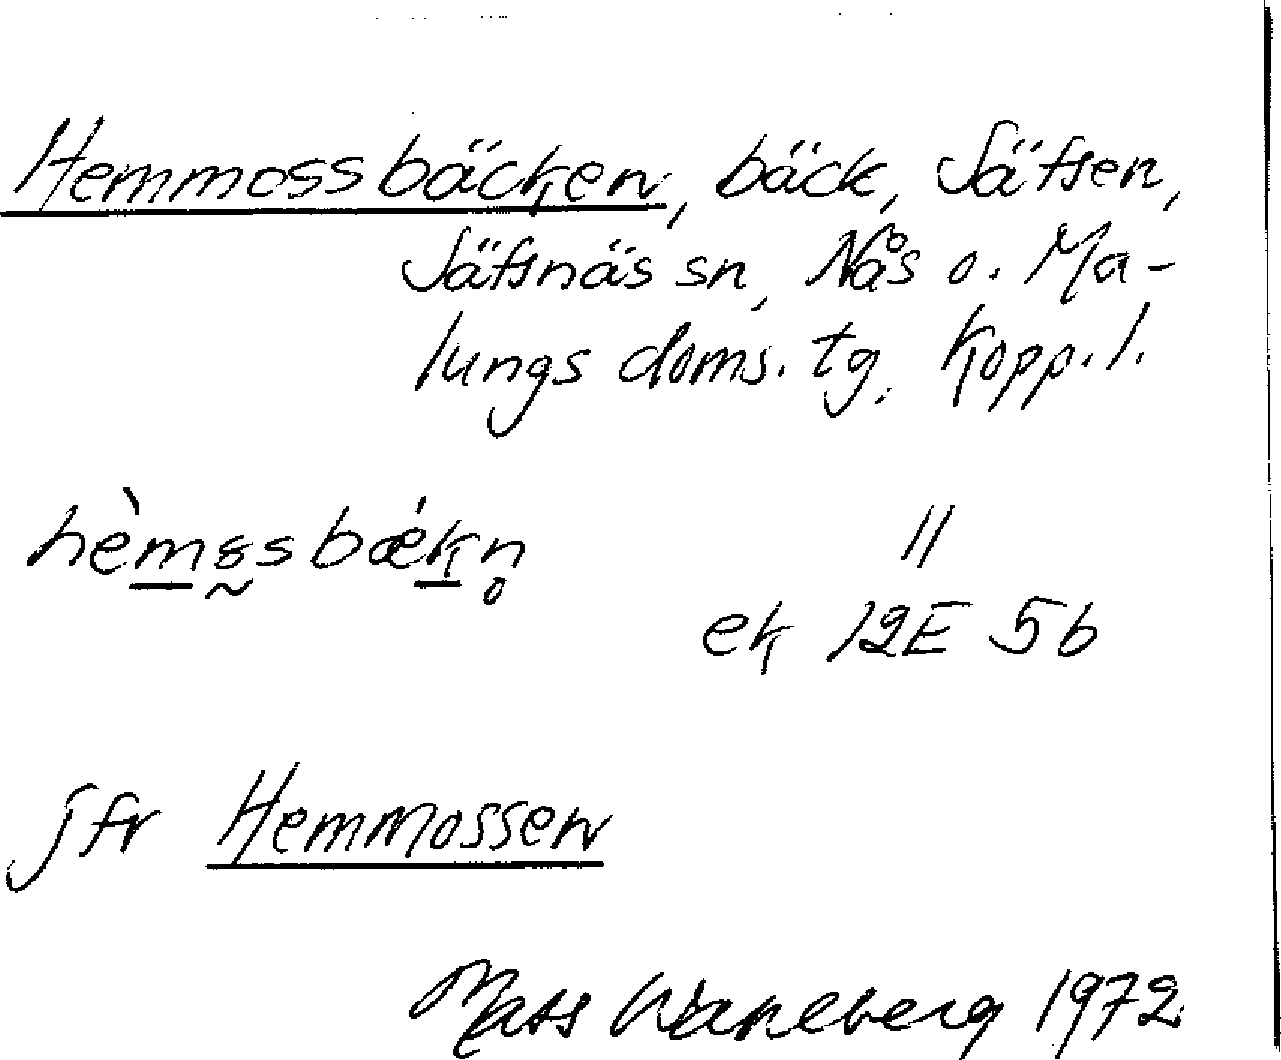 Hemmossbäcken, bäck, Säfsen,
Säfsnäs sn, Nås o. Ma-
lungs doms. tg. Kopp. l.
hèmɞsbǽkn̥ //
ek 12E 5b
jfr Hemmossen
Mats Wahlberg 1972